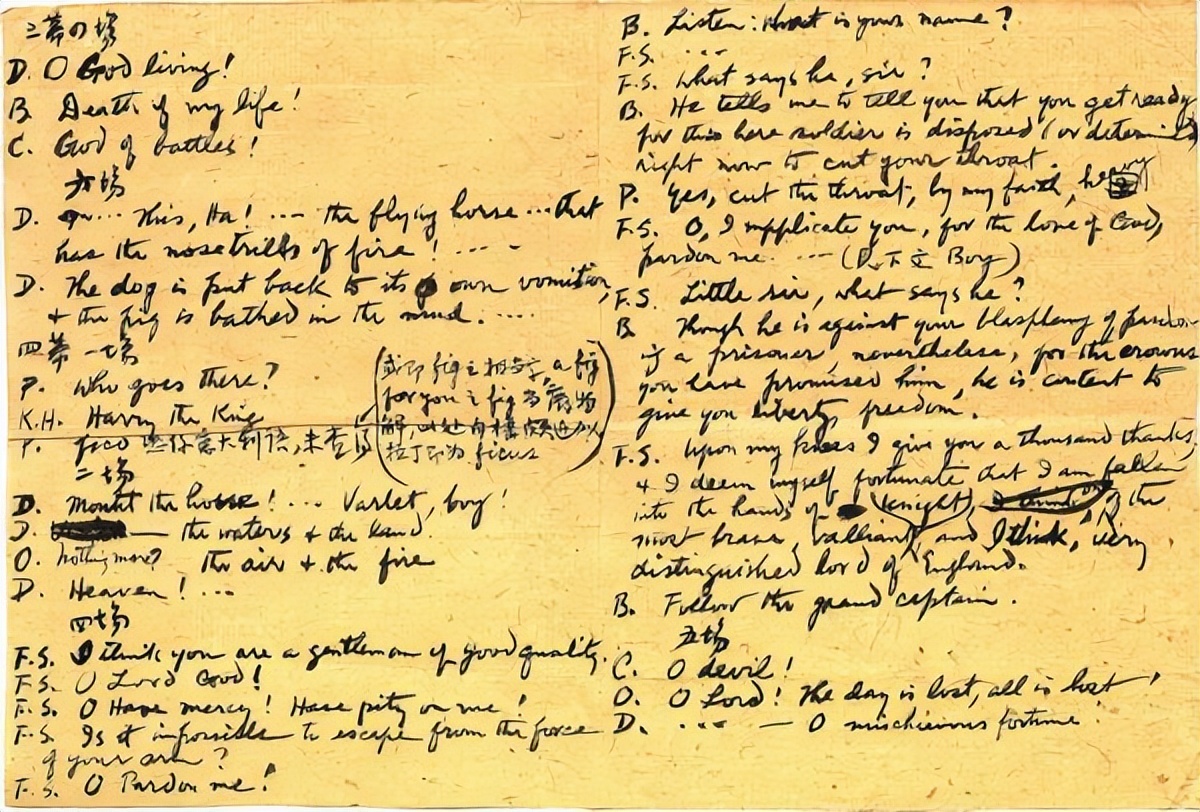 三幕の場
D. O God living!
B. Death of my life!
C. God of battles!
六場
D. .... This, Ha! .... the flying horse ... that
has the nosetrills of fire! ....
D. The dog is put back to its own vomition,
& the pig is bathed in the mud. ....
四幕 一場
P. Who goes there?
K.H. Harry the King
P. fico 意大利語,未查
(或即 fig 之相 a fig
for you 之 fig
解,此处
拉丁即为 ficus)
二場
D. Mount the horse! ... Varlet, boy!
D. — the waters & the land.
O. nothing more? the air & the fire
D. Heaven! ...
四場
F.S. I think you are a gentleman of good quality.
F.S. O Lord God!
F.S. O Have mercy! Have pity on me!
F.S. Is it impossible to escape from the force
of your arm?
F.S. O Pardon me!
B. Listen: What is your name?
F.S. ...
F.S. What says he, sir?
B. He tells me to tell you that you get ready,
for this here soldier is disposed (or determined)
right now to cut your throat.
P. Yes, cut the throat, by my faith,
F.S. O, I supplicate you, for the love of God,
pardon me. .... ( Boy)
F.S. Little sir, what says he?
B Though he is against your blasphemy of pardon
if a prisoner, nevertheless, for the crowns
you have promised him, he is content to
give you liberty, freedom.
F.S. Upon my knees I give you a thousand thanks,
& I deem myself fortunate that I am fallen
into the hands of (knight), of the
most brave, valliant, and I think, very
distinguished lord of England.
B. Follow the grand captain.
五場
C. O devil!
O. O Lord! The day is lost, all is lost!
D. .... — O mischievous fortune.